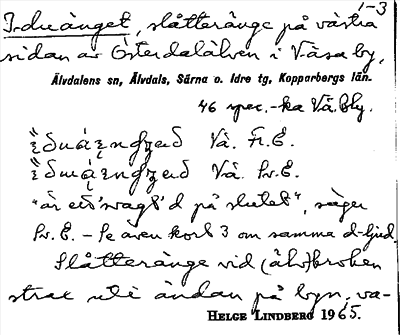 1-3
Idreänget, slåtteränge på västra
sidan av Österdalälven i Våsa by,
Älvdalens sn, Älvdals, Särna o. Idre tg, Kopparbergs län.
46 spec.-ka Vå. Bly.
Vå. Fr. E.
Vå. Pr. E.
"är ett svagt d på slutet", säger
Pr. E. – Se även kort 3 om samma d-ljud.
Slåtteränge vid (älv)broken
strax ute ändan på byn, va-
HELGE LINDBERG 1965.